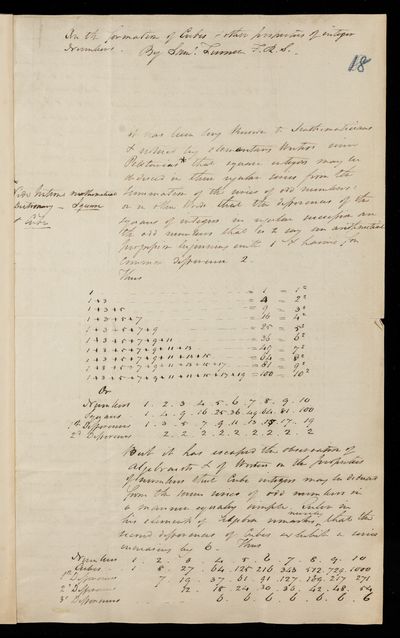 On the formation of Cubes & other properties of integer
Numbers. By Saml. Lunn F.R.S.
18
It has been long known to Mathematicians
& noticed by elementary writers
that square integers may be
deduced in their regular series from the
Summation of the series of odd numbers:
or in other words that the differences of the
squares of integers in regular succession are
the odd numbers that is to say an arithmetical
progression beginning with 1 & having for
common difference 2.
Vide Huttons mathematical
Dictionary - Square
& Cube
Thus
1 = 1 = 1²
1+3 = 4 = 2²
1+3+5 = 9 = 3²
1+3+5+7 = 16 = 4²
1+3+5+7+9 = 25 = 5²
1+3+5+7+9+11 = 36 = 6²
1+3+5+7+9+11+13 = 49 = 7²
1+3+5+7+9+11+13+15 = 64 = 8²
1+3+5+7+9+11+13+15+17 = 81 = 9²
1+3+5+7+9+11+13+15+17+19 = 100 = 10²
Or
Numbers 1 . 2 . 3 . 4 . 5 . 6 . 7 . 8 . 9 . 10
Squares 1 . 4 . 9 . 16 . 25 . 36 . 49 . 64 . 81 . 100
1st Differences 1 . 3 . 5 . 7 . 9 . 11 . 13 . 15 . 17 . 19
2d Differences 2 . 2 . 2 . 2 . 2 . 2 . 2 . 2 . 2
But it has escaped the observation of
Algebraists & of writers on the properties
of numbers that Cube integers may be deduced
from the same series of odd numbers in
a manner equally simple. Euler in
his elements of Algebra remarks merely that the
second differences of Cubes exhibit a series
increasing by 6. Thus
Numbers 1 . 2 . 3 . 4 . 5 . 6 . 7 . 8 . 9 . 10
Cubes 1 . 8 . 27 . 64 . 125 . 216 . 343 . 512 . 729 . 1000
1st Differences 7 . 19 . 37 . 61 . 91 . 127 . 169 . 217 . 271
2d Differences 12 . 18 . 24 . 30 . 36 . 42 . 48 . 54
3d Differences 6 . 6 . 6 . 6 . 6 . 6 . 6